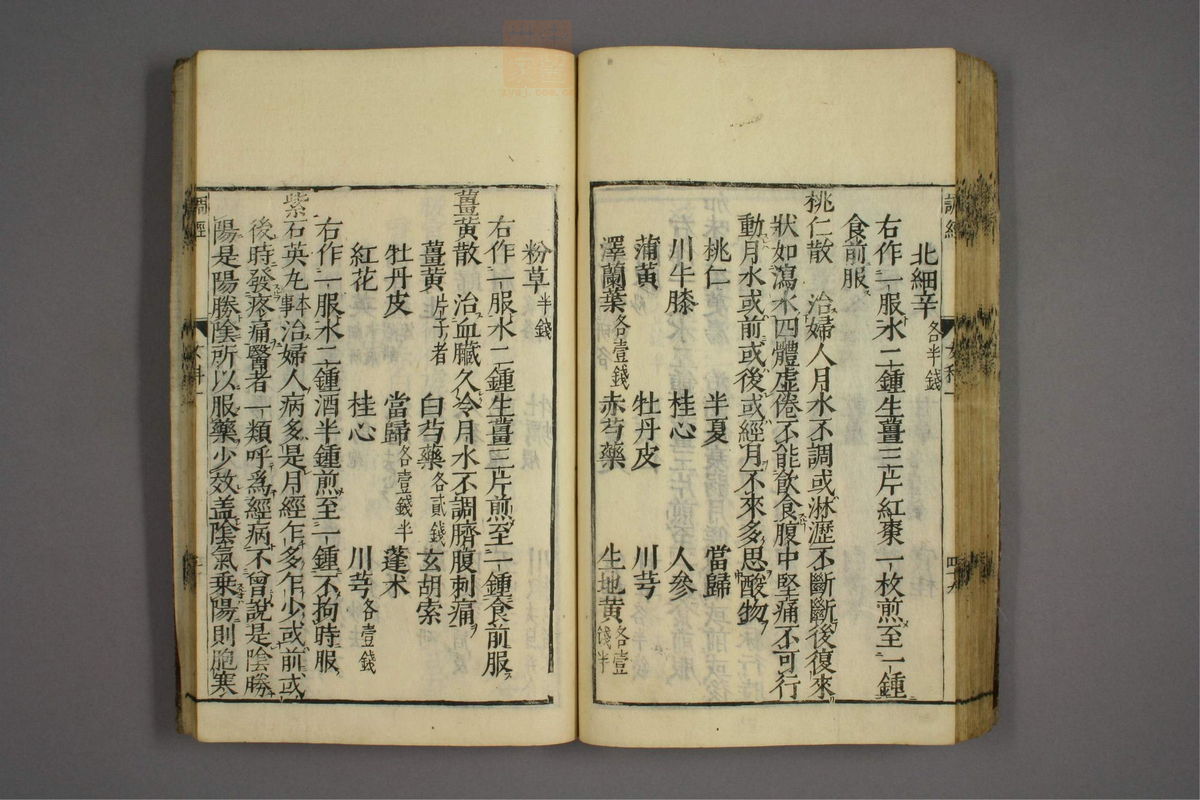 調經
女科一
四十九
北細辛各半錢
右作一服水二鍾生薑三片紅棗一枚煎至一鍾
食前服
桃仁散 治婦人月水不調或淋瀝不斷斷後復來
狀如瀉水四體虛倦不能飲食腹中堅痛不可行
動月水或前或後或經月不來多思酸物
桃仁 半夏 當歸
川牛膝 桂心 人參
蒲黃 牡丹皮 川芎
澤蘭葉各壹錢 赤芍藥 生地黃各壹錢半
粉草半錢
右作一服水二鍾生薑三片煎至一鍾食前服
薑黃散 治血臟久冷月水不調臍腹刺痛
薑黃片子者 白芍藥各貳錢 玄胡索
牡丹皮 當歸各壹錢半 蓬术
紅花 桂心 川芎各壹錢
右作一服水二鍾酒半鍾煎至一鍾不拘時服
紫石英丸本事 治婦人病多是月經乍多乍少或前或
後時發疼痛醫者一類呼爲經病不曾說是陰勝
陽是陽勝陰所以服藥少效盖陰氣乗陽則胞寒
調經
女科一